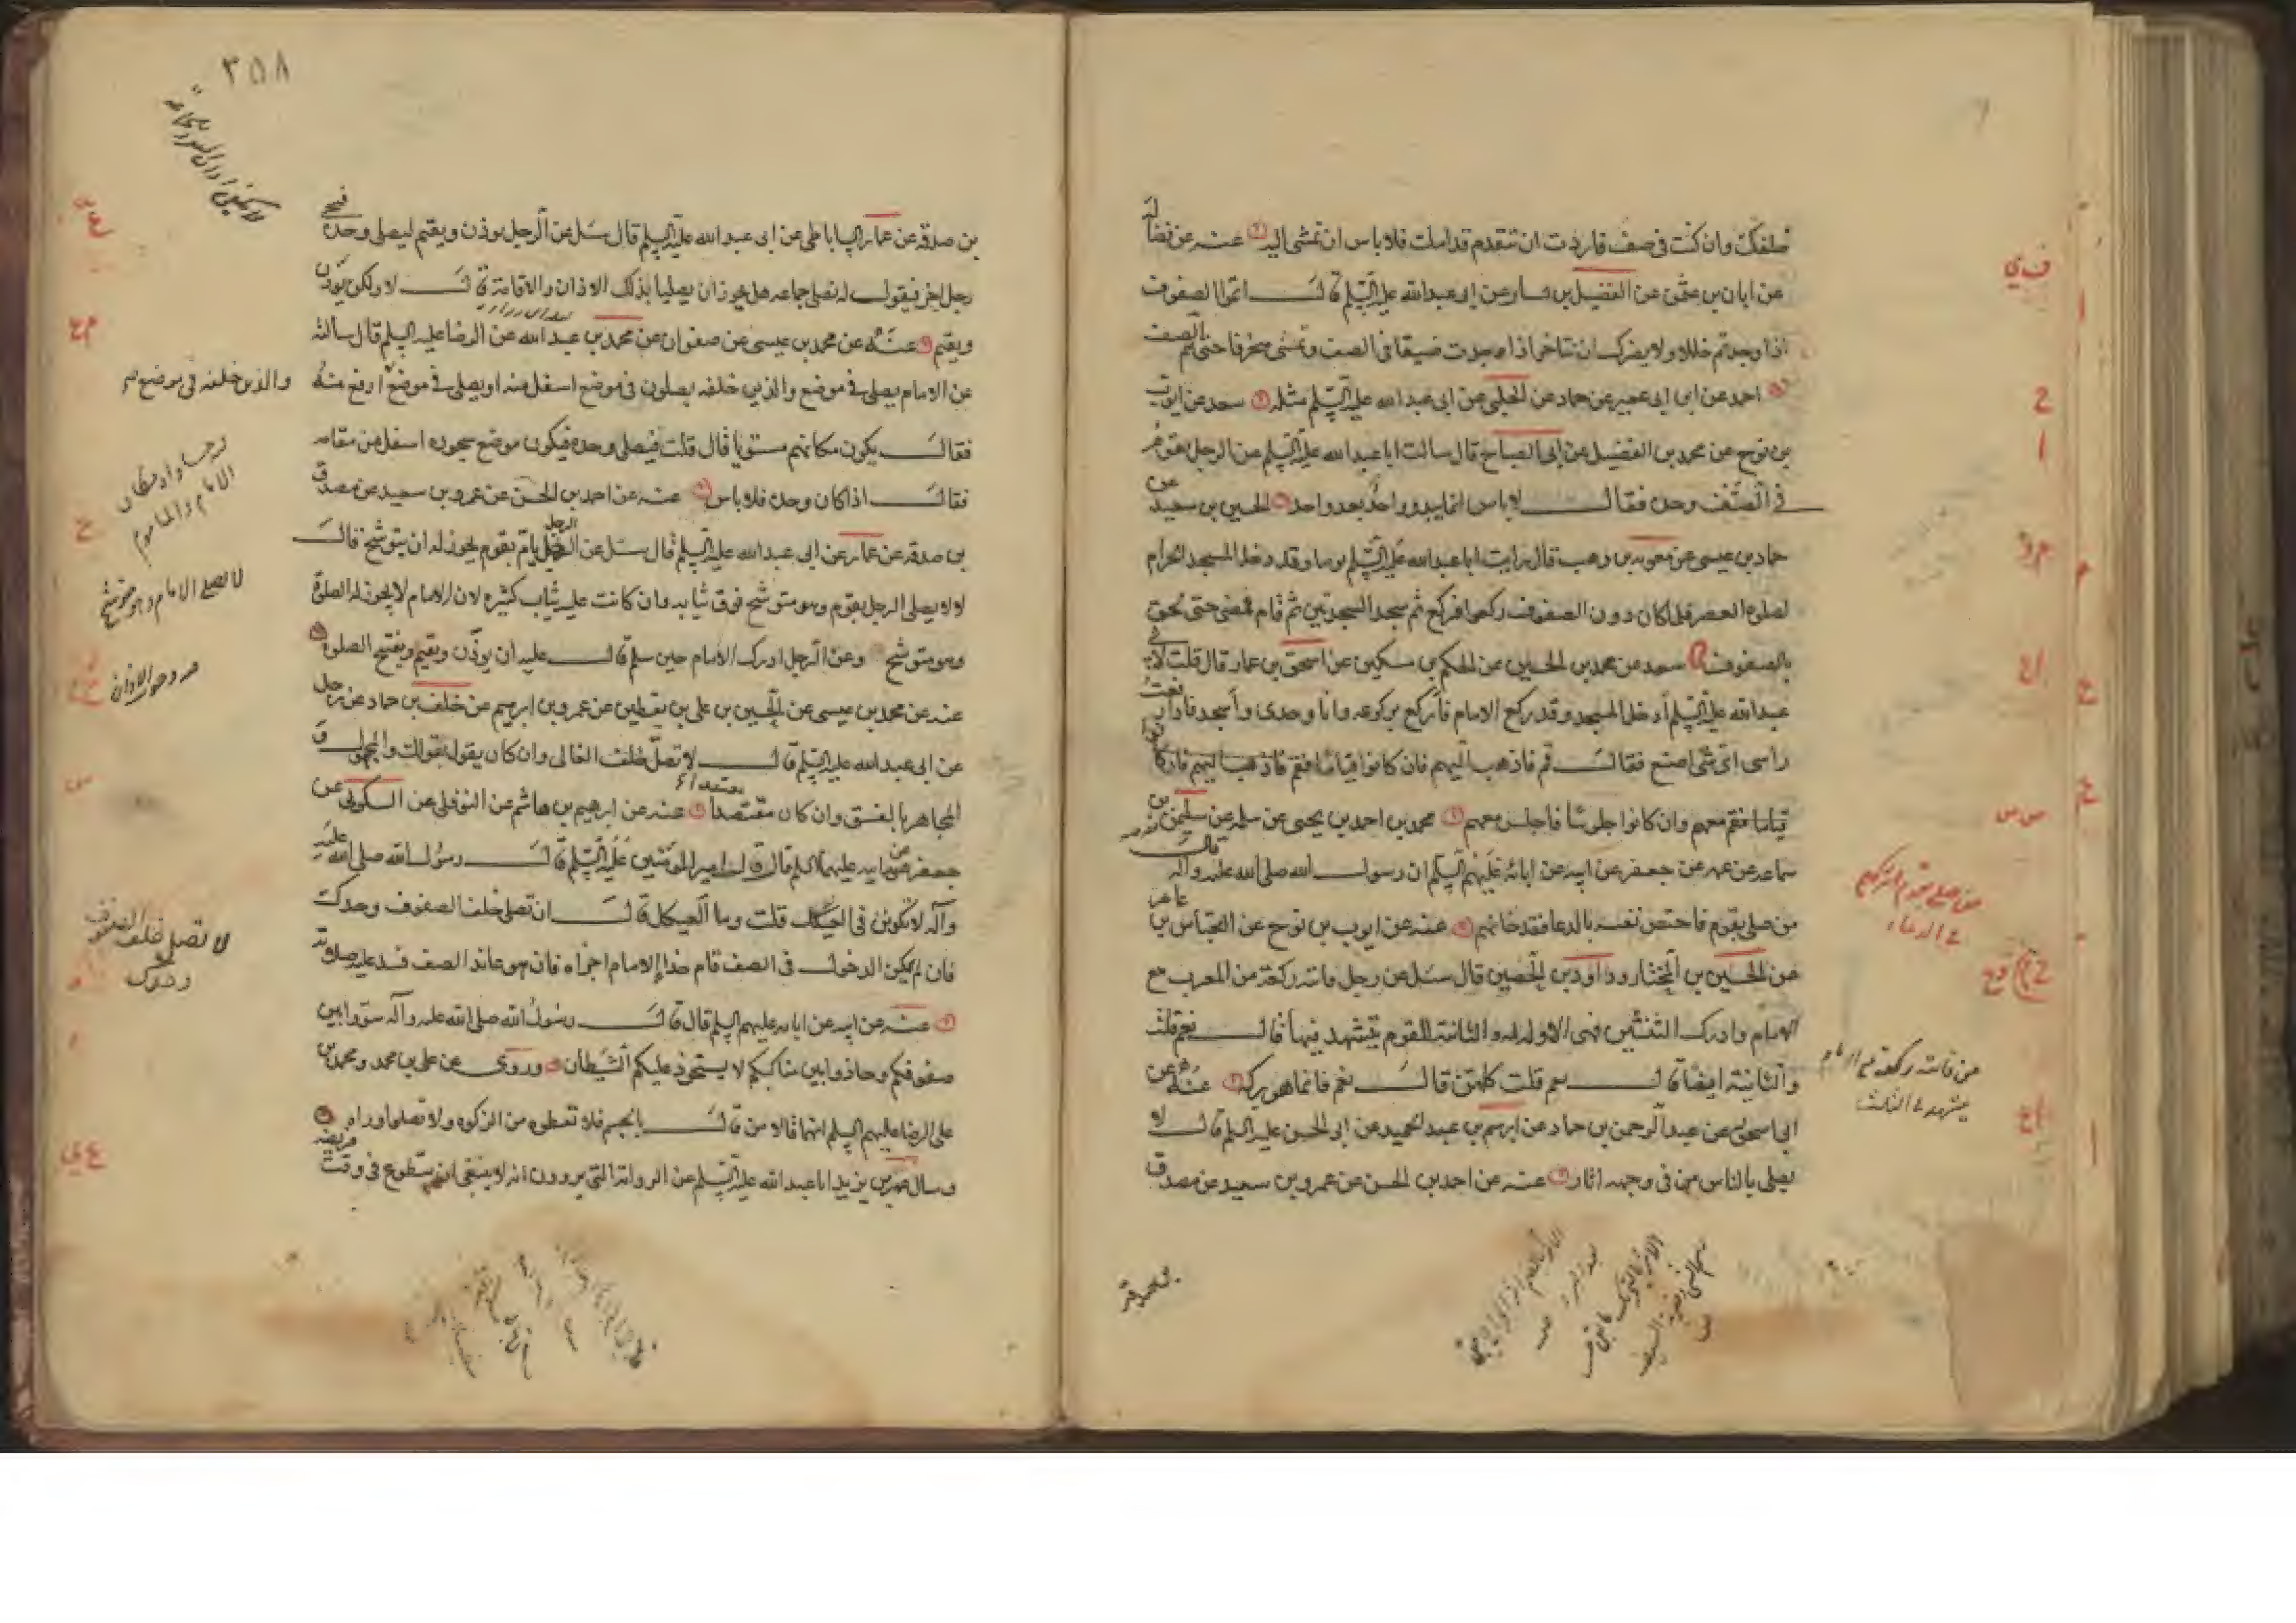 خلفك وان كنت في صف فاردت ان تتقدم قدامك فلا باس ان تمشي اليه عنه عن فضاله
عن ابان بن عثمن عن الفضيل بن يسار عن ابي عبد الله عليه السلم قال اتموا الصفوف
اذا وجدتم خللا ولا يضرك ان تتاخر اذا وجدت ضيقا في الصف وتمشي منحرفا حتى تتم الصف
احمد عن ابن ابي عمير عن حماد عن الحلبي عن ابي عبد الله عليه السلم مثله سعد عن ايوب
بن نوح عن محمد بن الفضيل عن ابي الصباح قال سالت ابا عبد الله عليه السلم عن الرجل يقوم
في الصف وحده فقال لا باس انما يبدو واحد بعد واحد الحسين بن سعيد عن
حماد بن عيسى عن معوية بن وهب قال رايت ابا عبد الله عليه السلم يوما وقد دخل المسجد الحرام
لصلوة العصر فلما كان دون الصفوف ركعوا فركع ثم سجد السجدتين ثم قام فمضى حتى لحق
بالصفوف سعد عن محمد بن الحسين عن الحكم بن مسكين عن اسحق بن عمار قال قلت لابي
عبد الله عليه السلم أدخل المسجد وقد ركع الامام فأركع بركوعه وانا وحدي وأسجد فاذا رفعت
راسي اي شي اصنع فقال قم فاذهب اليهم فان كانوا قياما فقم فاذهب اليهم فان كانوا
قياما فقم معهم وان كانوا جلوسا فاجلس معهم محمد بن احمد بن يحيى عن سلمه عن سليمن بن
سماعه عن عمه عن جعفر عن ابيه عن ابائه عليهم السلم ان رسول الله صلى الله عليه وآله قال
من صلى بقوم فاختص نفسه بالدعا فقد خانهم عنه عن ايوب بن نوح عن العباس بن عامر
عن الحسين بن المختار وداود بن الحصين قال سئل عن رجل فاتته ركعة من المغرب مع
الامام وادرك الثنتين فهي الاولى له والثانية للقوم يتشهد فيها قال نعم قلت
والثانية ايضا قال نعم قلت كلهن قال نعم فانما هو بركه عنه عن
ابي اسحق عن عبد الرحمن بن حماد عن ابرهيم بن عبد الحميد عن ابي الحسن عليه السلم قال لا
يصلي بالناس من في وجهه اثار عنه عن احمد بن الحسن عن عمرو بن سعيد عن مصدق
بن صدقه
من صلى بقوم
في الدعاء
من فاتته ركعة مع الامام
يتشهد في الثلث
٣٥٨
بن صدقه عن عمار الساباطي عن ابي عبد الله عليه السلم قال سئل عن الرجل يوذن ويقيم ليصلي وحده فيجي
رجل اخر فيقول له نصلي جماعه هل يجوز ان يصليا بذلك الاذان والاقامة قال لا ولكن يوذن
ويقيم عنه عن محمد بن عيسى عن صفوان عن محمد بن عبد الله عن الرضا عليه السلم قال سالته
عن الامام يصلي في موضع والذين خلفه يصلون في موضع اسفل منه او يصلي في موضع ارفع منه
فقال يكون مكانهم مستويا قال قلت فيصلي وحده فيكون موضع سجوده اسفل من مقامه
فقال اذا كان وحده فلا باس عنه عن احمد بن الحسن عن عمرو بن سعيد عن مصدق
بن صدقه عن عمار عن ابي عبد الله عليه السلم قال سئل عن الرجل يام بقوم يجوز له ان يتوشح قال
لا لا يصلي الرجل بقوم وهو متوشح فوق ثيابه وان كانت عليه ثياب كثيره لان الامام لا يجوز له الصلوة
وهو متوشح وعن الرجل ادرك الامام حين سلم قال عليه ان يوذن ويقيم ويفتتح الصلوة
عنه عن محمد بن عيسى عن الحسين بن علي بن يقطين عن عمرو بن ابرهيم عن خلف بن حماد عن رجل
عن ابي عبد الله عليه السلم قال لا تصل خلف الغالي وان كان يقول بقولك والمجهول و
المجاهر بالفسق وان كان مقتصدا عنه عن ابرهيم بن هاشم عن النوفلي عن السكوني عن
جعفر عن ابيه عليهما السلم قال قال امير المؤمنين عليه السلم قال رسول الله صلى الله عليه
وآله لا تكونن في العيكل قلت وما العيكل قال ان تصلي خلف الصفوف وحدك
فان لم يمكن الدخول في الصف قام حذا الامام اجزاه فان هو عاند الصف فسد عليه صلوته
عنه عن ابيه عن ابائه عليهم السلم قال قال رسول الله صلى الله عليه وآله سووا بين
صفوفكم وحاذوا بين مناكبكم لا يستحوذ عليكم الشيطان وروى عن علي بن محمد ومحمد بن
علي الرضا عليهم السلم انهما قالا من قال بالجسم فلا تعطوه من الزكوة ولا تصلوا وراه
وسال عمر بن يزيد ابا عبد الله عليه السلم عن الرواية التي يروون انه لا ينبغي ان يتطوع في وقت فريضه
والذين خلفه في موضع
الامام والماموم
لا يصلي الامام وهو متوشح
لا تصلي خلف الصفوف
وحدك